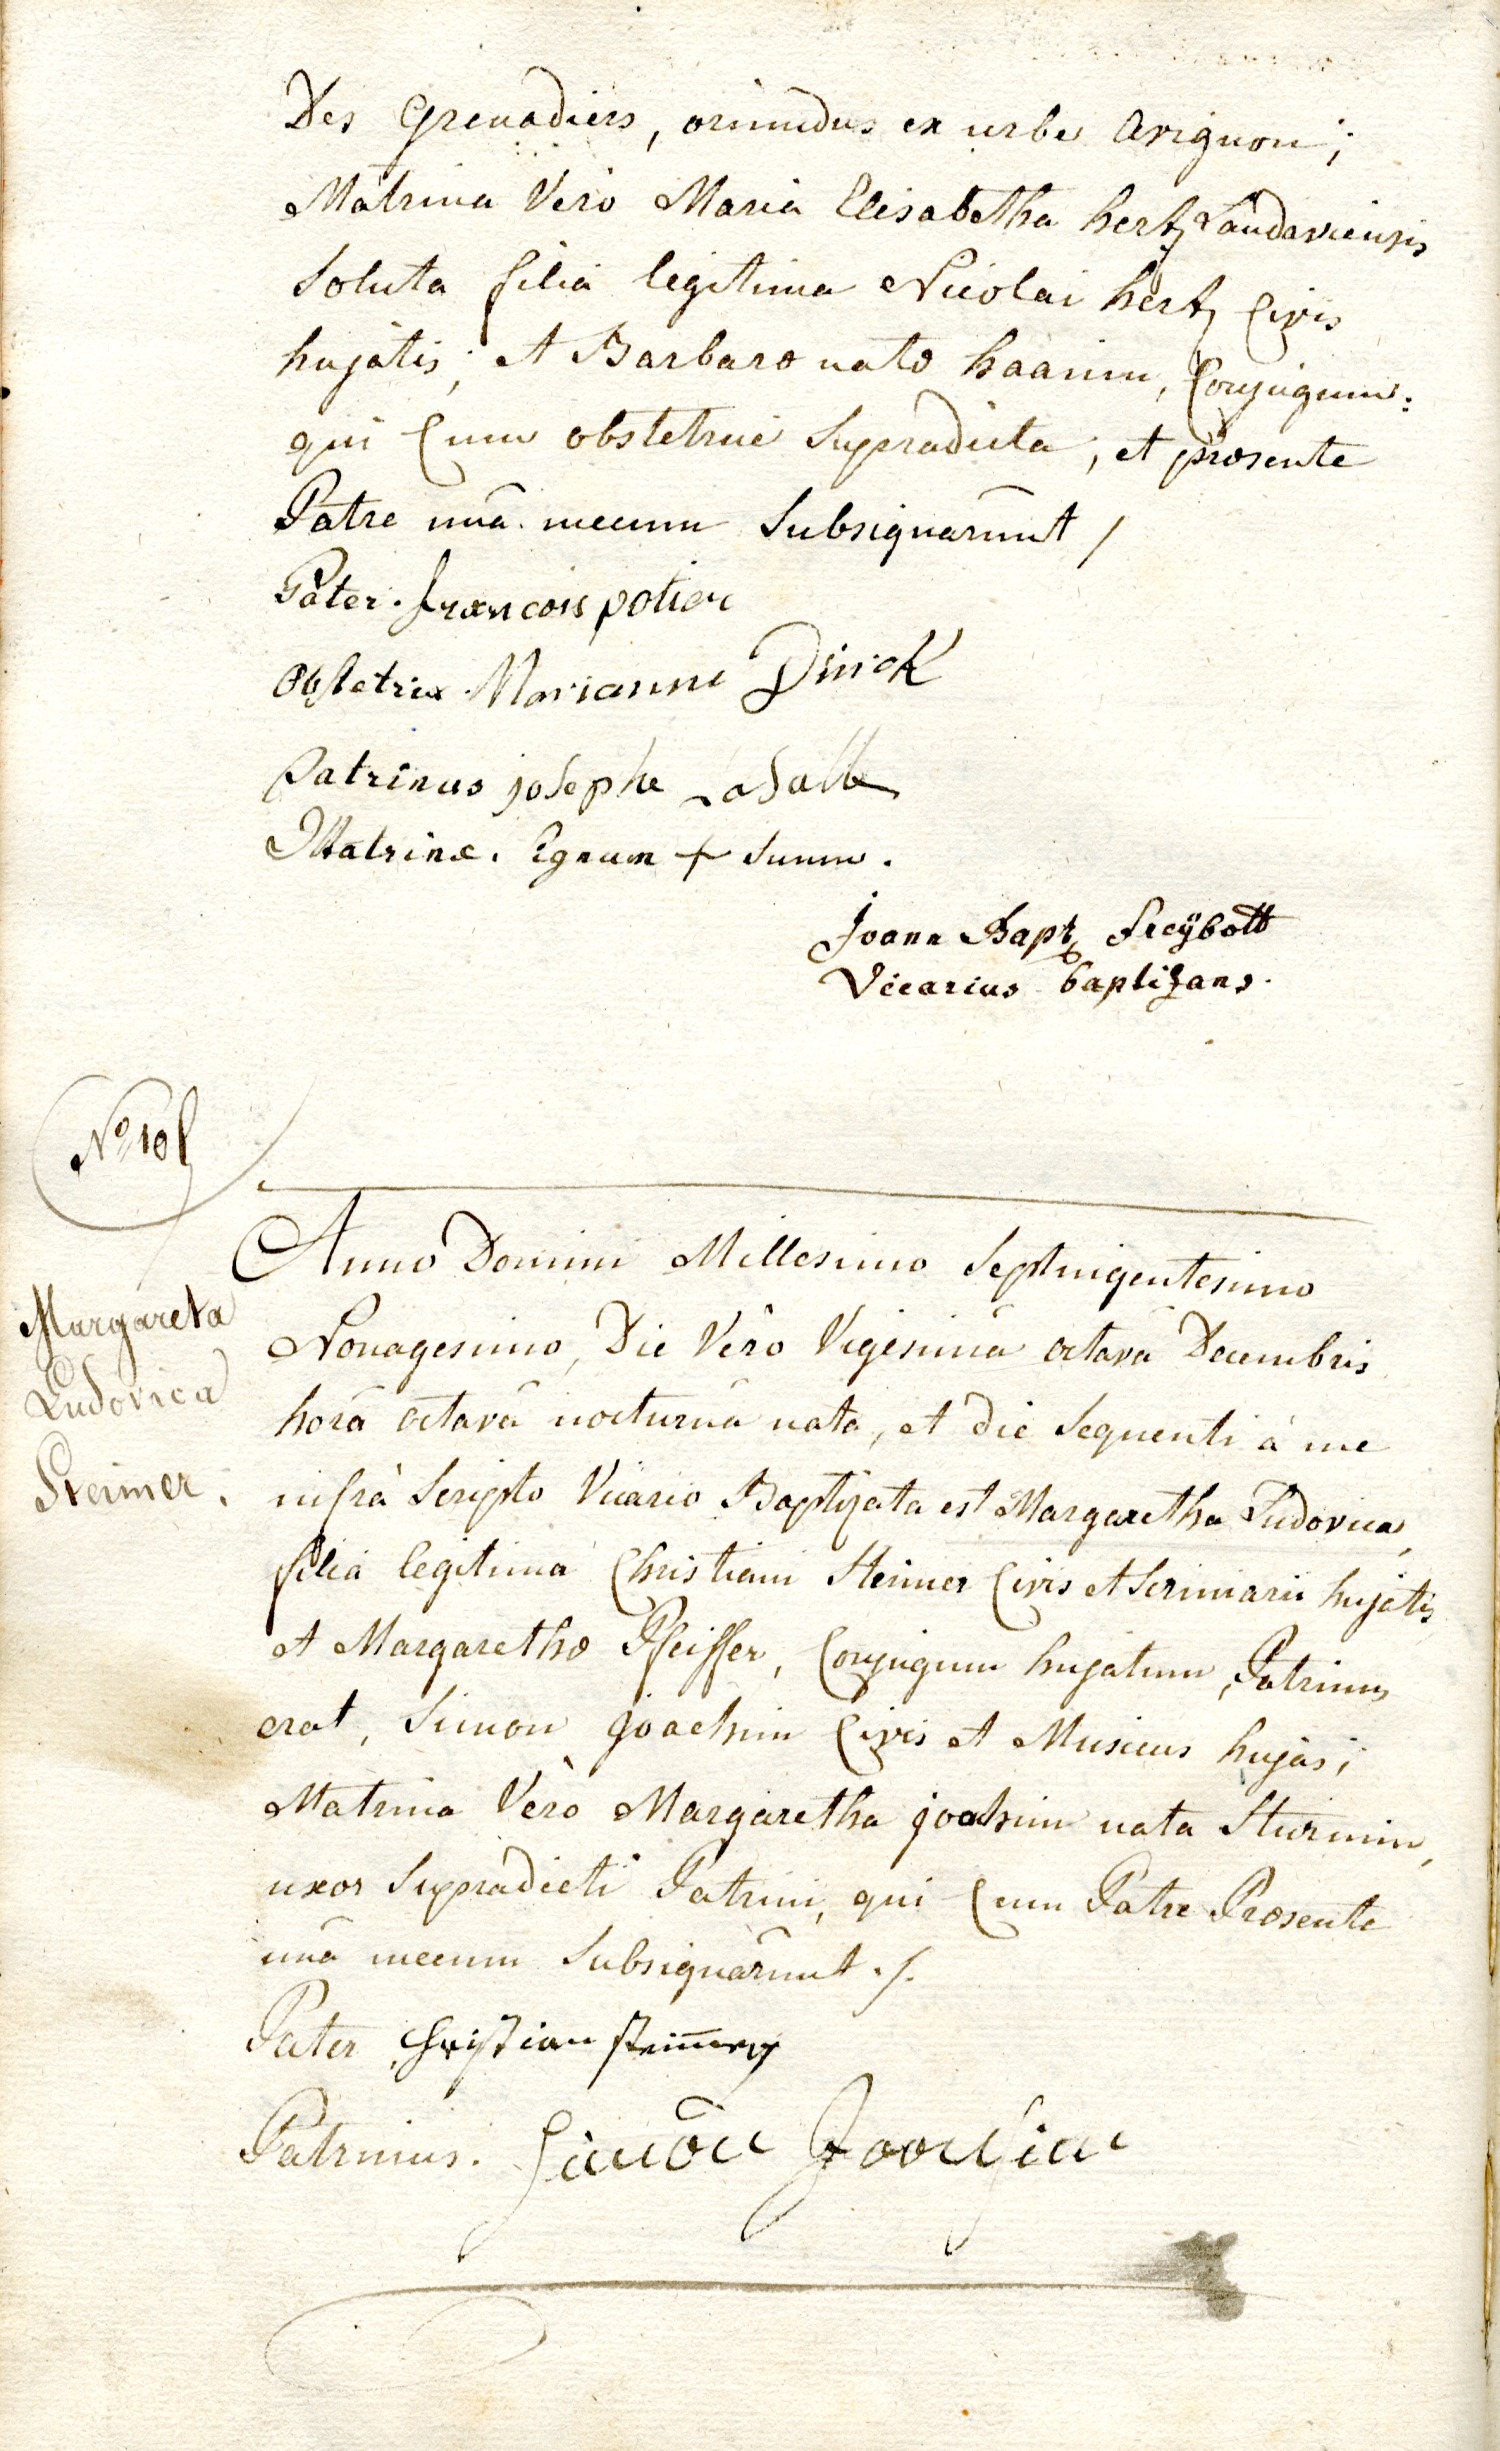 Des Grenadiers, oriundus ex urbe Avignon;
Matrina Vero Maria Elisabetha hertz Landaviensis
Soluta filia legitima Nicolai hertz Civis
hujatis, et Barbaræ natæ haanin, Conjugum:
qui Cum obstetrice Supradicta, et præsente
Patre unâ mecum Subsignarunt /
Pater. francois potier
Obstetrix Marianne Dirick
Patrinus josephe Lasalle
Matrinæ. signum + Suum.
Joann Bapt Freÿbott
Vicarius baptizans.
Nº 108
Anno Domini Millesimo Septingentesimo
Nonagesimo, Die Verò Vigesimâ octavâ Decembris
horâ octavâ nocturnâ nata, et die Sequenti à me
infrà Scripto Vicario Baptizata est Margaretha Ludovica,
filia legitima Christiani Steimer Civis et Scriniarii hujatis
et Margarethæ Pfeiffer, Conjugum hujatum, Patrinus
erat, Simon joachim Civis et Musicus hujas;
Matrina Verò Margaretha joachim nata Sturmin,
uxor Supradicti Patrini, qui Cum Patre Præsente
unâ mecum Subsignârunt ./.
Margareta
Ludovica
Steimer.
Pater Christian Steimer
Patrinus. Simon Joachim